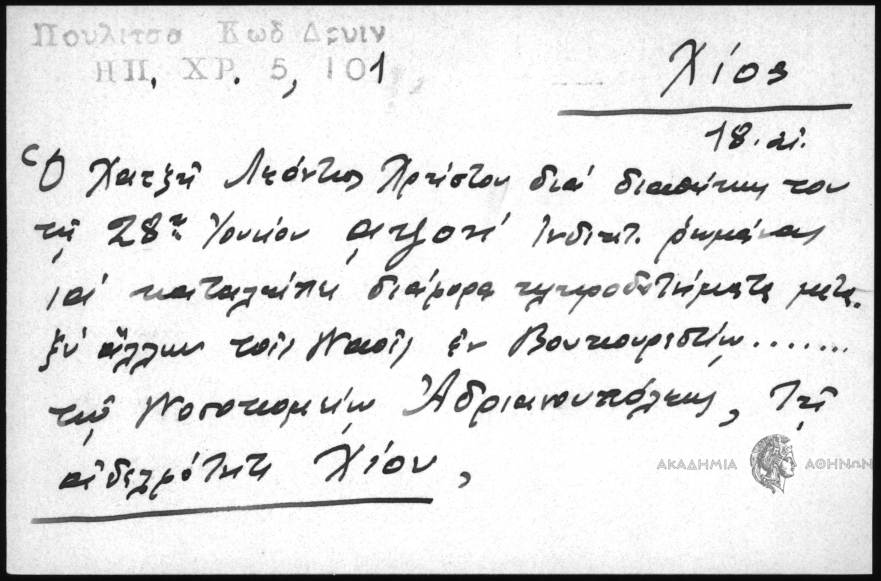 Πουλιτσα Κωδ Δρυιν
ΗΠ. ΧΡ. 5, 101
Χίος
18. αἰ.
Ὁ Χατζῆ Λεόντιος Χρίστου διά διαθήκης του
τῇ 28ῃ Ἰουνίου αψογ' ἰνδικτ.
καταλείπει διάφορα κληροδοτήματα μετα-
ξύ ἄλλων τοῖς Ναοῖς ἐν Βουκουρεστίῳ........
τῷ Νοσοκομείῳ Ἀδριανουπόλεως, τῇ
ἀδελφότητι Χίου,
ΑΚΑΔΗΜΙΑ ΑΘΗΝΩΝ